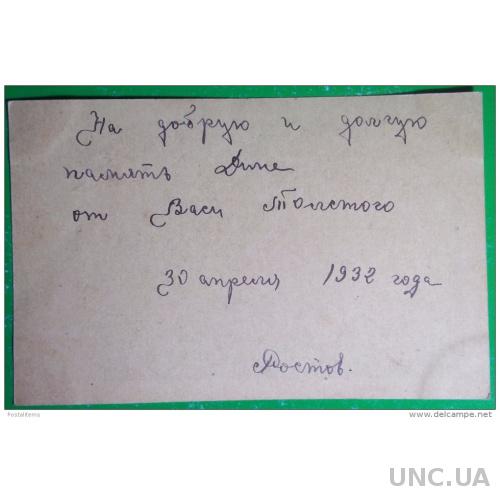 На добрую и долгую
память Дине
от Васи Толстого
30 апреля 1932 года
Ростов.
PostalItems
www.delcampe.net
UNC.UA